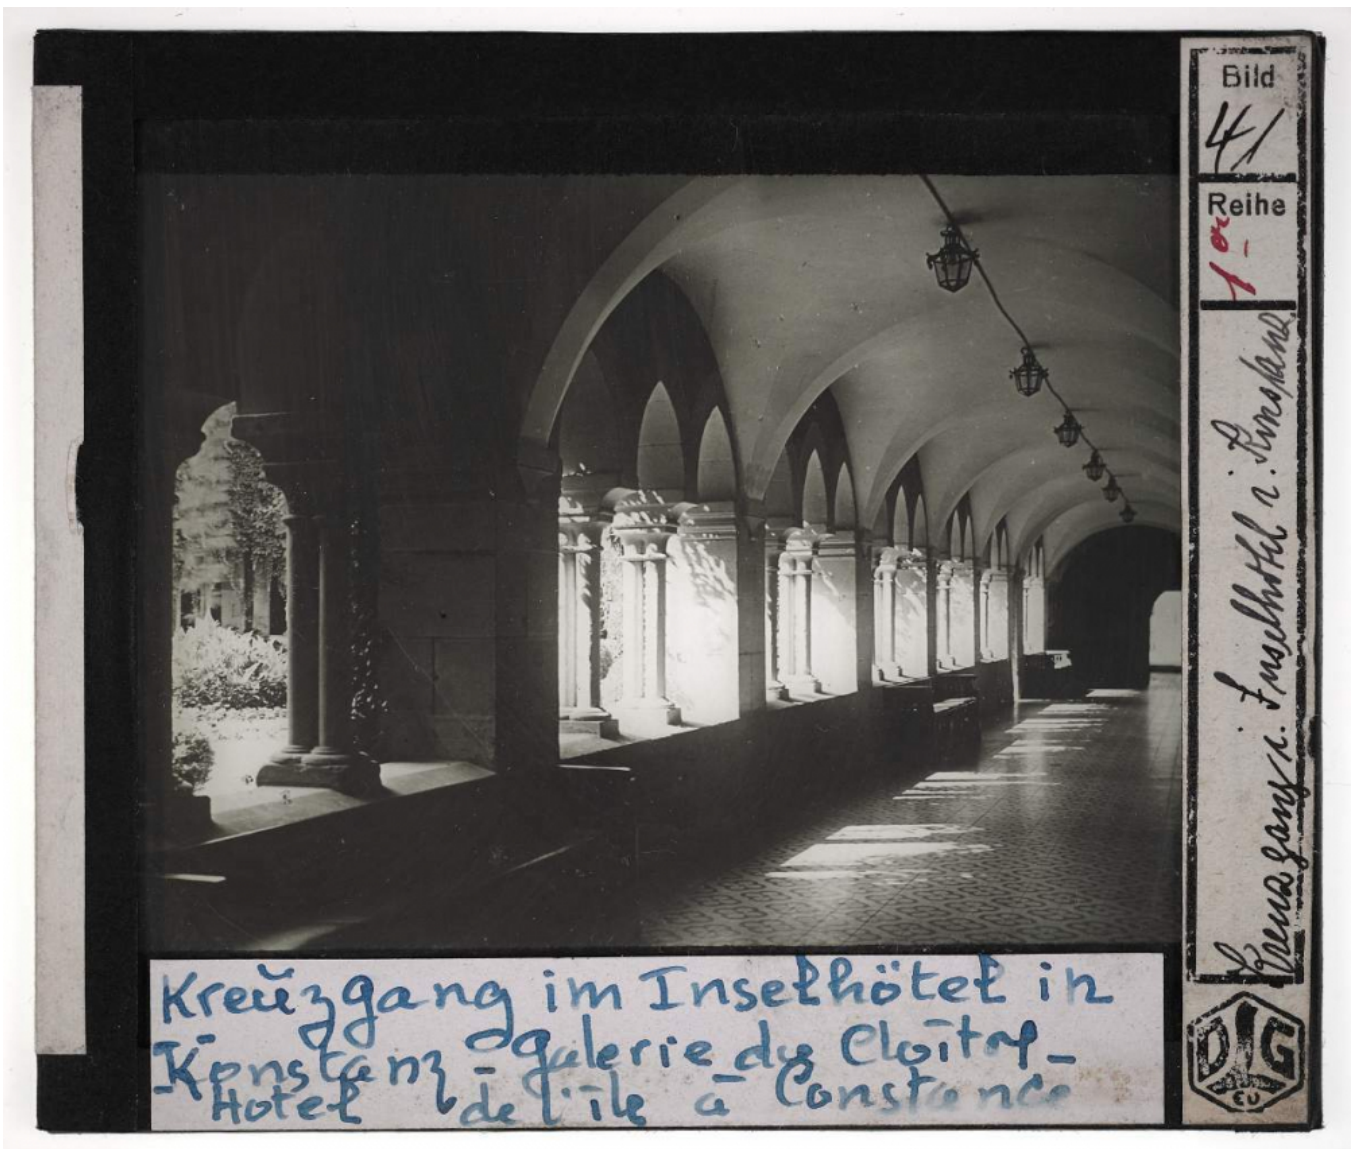 Bild
41
Reihe
1er
Kreuzgang i. Inselhotel i. Konstanz
Kreŭzgang im Inselhötel in
Konstanz - Galerie du Cloître-
Hotel de l'île à Constance
DLG
EU